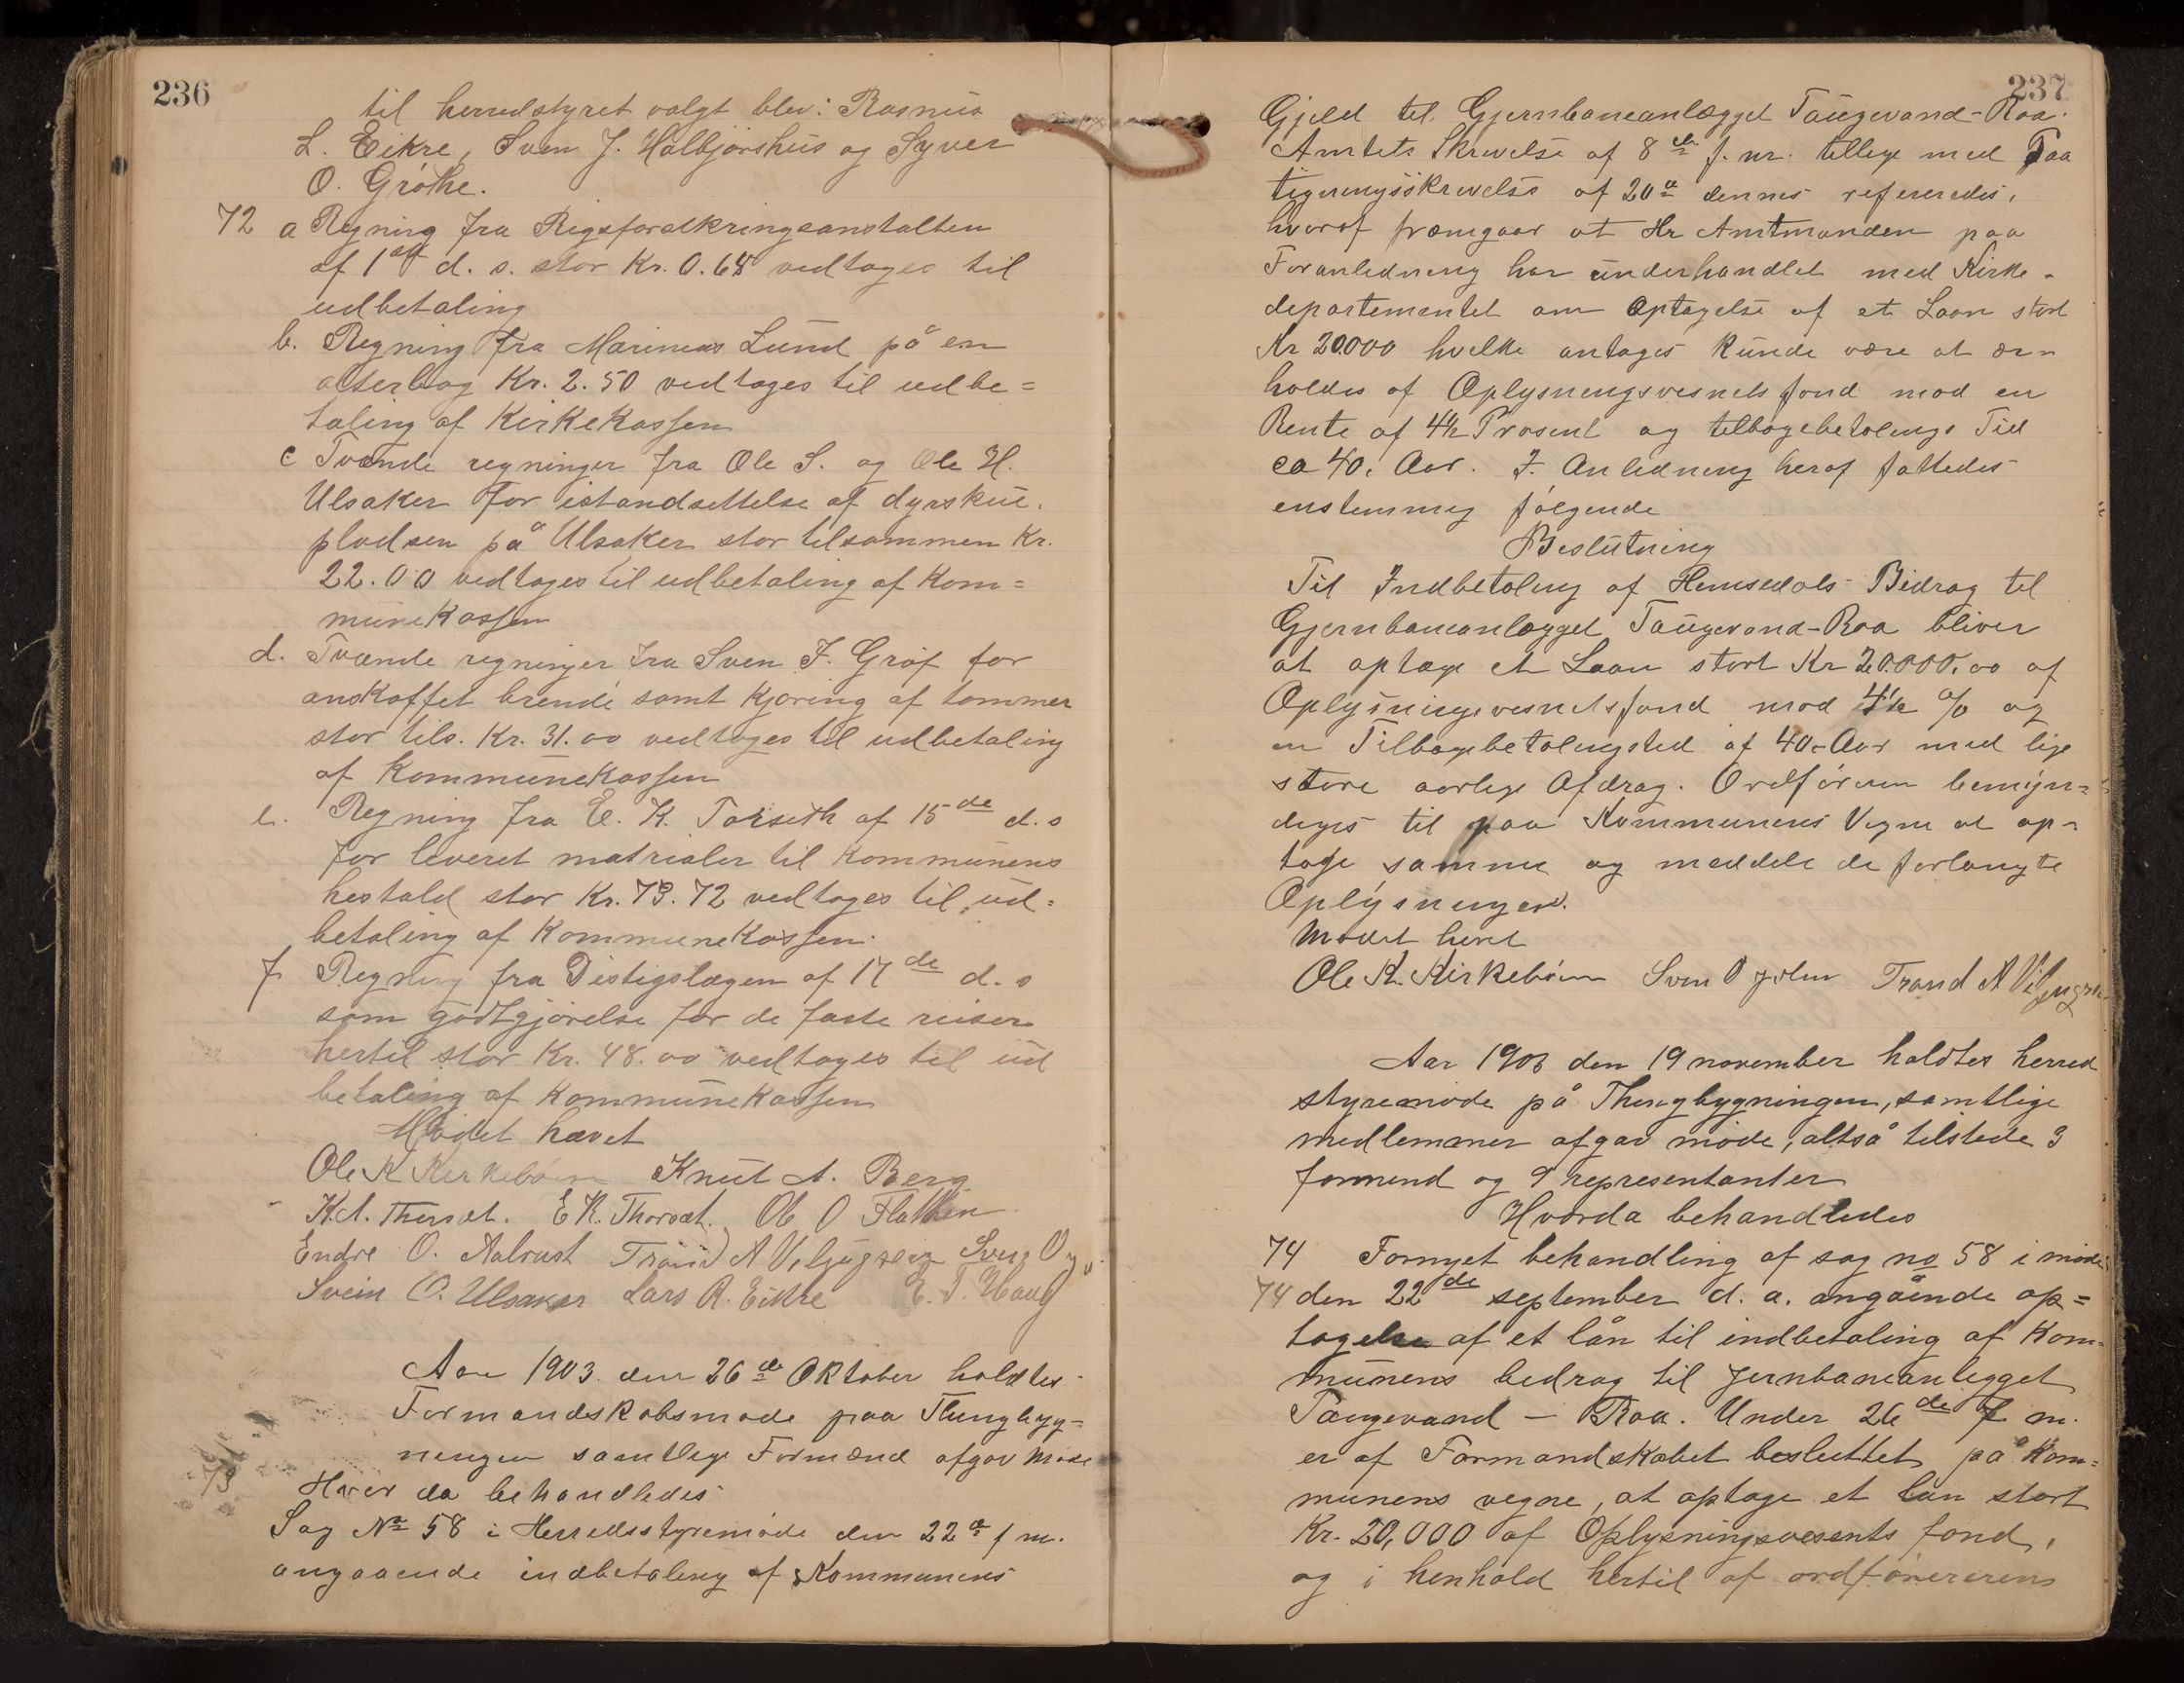 236
til herredstyret valgt blev: Rasmus
L. Eikre, Sven J. Halbjørshus og Syver
O. Grøthe.
72 a Regning fra Rigsforsikringsanstalten
af 1ste d. s. stor Kr. 0.68 vedtages til
udbetaling
b. Regning fra Marinus Lund på en
alterbog Kr. 2.50 vedtages til udbe=
taling af Kirkekassen
c Tvende regninger fra Ole S. og Ole H.
Ulsaker for istandsettelse af dyrskue.
pladsen på Ulsaker stor tilsammen Kr.
22.00 vedtages til udbetaling af Kom=
munekassen
d. Tvænde regninger fra Sven J. Grøf for
anskaffet brende samt kjøring af tømmer
stor tils. Kr. 31.00 vedtages til udbetaling
af Kommunekassen
e. Regning fra E. K. Torseth af 15de d.s
for leveret matrialer til Kommunens
hestald stor Kr. 73.72 vedtages til ud=
betaling af Kommunekassen.
f Regning fra Distigslægen af 17de d. s
som godtgjørelse for de faste reiser
hertil stor Kr. 48.00 vedtages til ud
betaling af Kommunekassen
Mødet hævet
Ole K Kirkebøen Knut A. Berg
K.A. Thorset. E K. Thorset. Ole O Flathen
Endre O. Aalrust Trond A Viljugrein Sven O
Svein O. Ulsaker Lars R. Eikre E. T. Haug
Aar 1903 den 26de Oktober holdtes
Formandskabsmøde paa Thingbyg=
ningen samtlige Formænd afgav Møde
73 Hvor da behandledes
Sag No 58 i Herredsstyremøde den 22de f m.
angaaende indbetaling af Kommunens
237
Gjeld til Gjernbaneanlægget Taugevand-Roa.
Amtets Skrivelse af 8de f. m. tillige med Paa
tegningsskrivelse af 20de dennes refereredes,
hvoraf fræmgaar at Hr Amtmanden paa
Foranledning har underhandlet med Kirke-
departementet om Optagelse af et Laan stort
Kr 20000 hvilke antages kunde være at er-
holdes af Oplysningsvesnets fond mod en
Rente af 4½ Prosent og tilbagebetalings Tid
ca 40, Aar. I Anledning heraf fattedes
enstemmig følgende
Beslutning
Til Indbetaling af Hemsedals Bidrag til
Gjernbaneanlægget Taugevand-Roa bliver
at optage et Laan stort Kr 20.000.00 af
Oplysningsvesnetsfond mod 4½ % og
en Tilbagebetalingstid af 40-Aar med lige
store aarlige Afdrag. Ordføreren bemyn=
diges til paa Kommunens Vegne at op-
tage samme og meddele de forlangte
Oplysninger.
Mødet hevet
Ole K. Kirkebøen Sven O Trond A Viljugrein
Aar 1903 den 19 november holdtes herred
styremøde på Thingbygningen, samtlige
medlemmer afgav møde, altså tilstede 3
formend og 9 representanter
Hvorda behandledes
74 Fornyet behandling af sag no 58 i møde
74 den 22de september d. a. angående op=
tagelse af et lån til indbetaling af Kom=
munens bedrag til Jernbaneanlegget
Taugevand – Roa. Under 26de f m.
er af Formandskabet besluttet på Kom=
munens vegne, at optage et lån stort
Kr. 20,000 af Oplysningsvesents fond,
og i henhold hertil af ordførererens